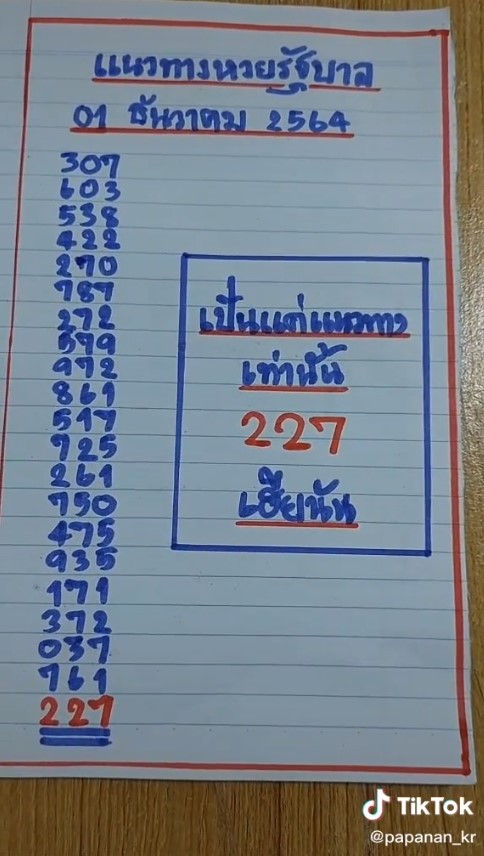 แนวทางหวยรัฐบาล
01 ธันวาคม 2564
307
603
538
422
270
787
272
579
972
861
517
725
261
750
475
935
171
372
037
761
227
เป็นแค่แนวทาง
เท่านั้น
227
เฮียนัน
TikTok
@papanan_kr